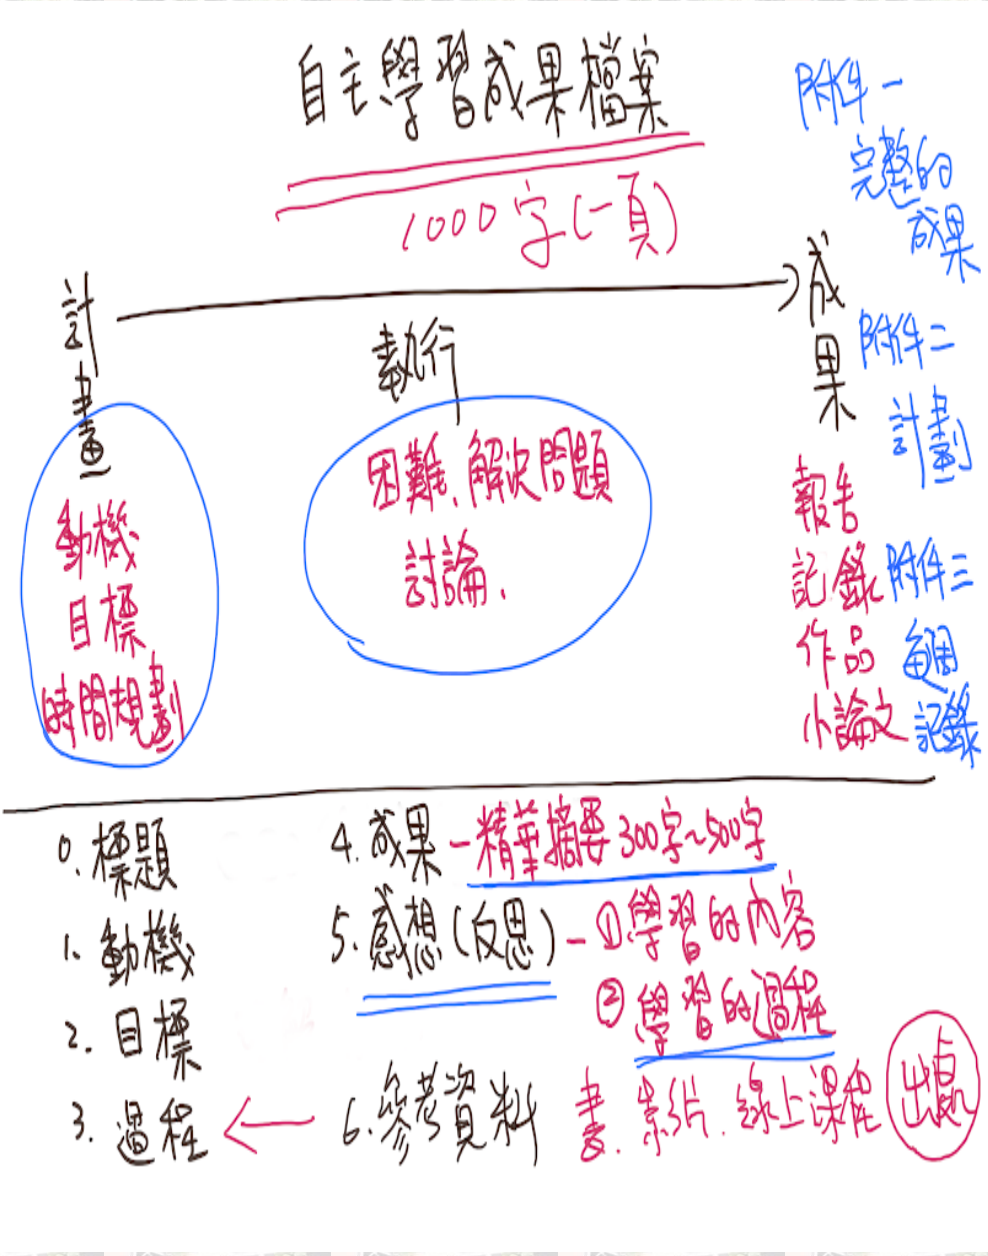 自主學習成果檔案
1000字(一頁)
附件一
完整的
成果
計畫
執行
成果
附件二
計劃
動機
目標
時間規劃
困難、解決問題
討論.
報告
記錄
作品
小論文
附件三
每週
記錄
0.標題
1.動機
2.目標
3.過程
4.成果-精華摘要300字~500字
5.感想(反思)-①學習的內容
②學習的過程
6.參考資料 書.影片.線上課程 出處